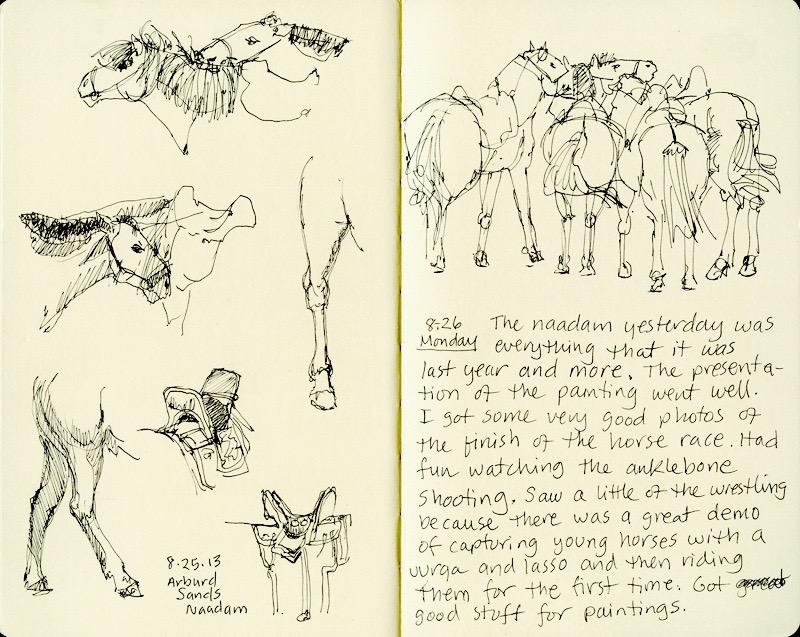 8.25.13
Arburd
Sands
Naadam
8.26 The naadam yesterday was
Monday everything that it was
last year and more. The presenta-
tion of the painting went well.
I got some very good photos of
the finish of the horse race. Had
fun watching the anklebone
shooting. Saw a little of the wrestling
because there was a great demo
of capturing young horses with a
uurga and lasso and then riding
them for the first time. Got
good stuff for paintings.